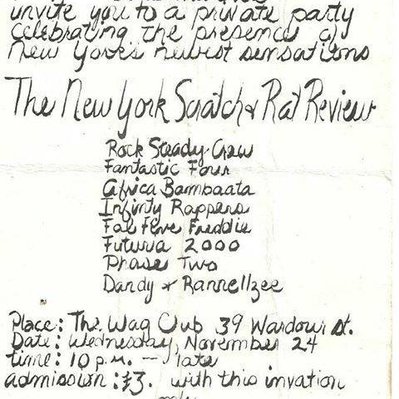 invite you to a private party
celebrating the presence of
New York's newest sensations
The New York Scratch & Rat Review
Rock Steady Crew
Fantastic Four
Africa Bambaata
Infinty Rappers
Fab Five Freddie
Futura 2000
Phase Two
Dandy & Rannellzee
Place: The Wag Cub 39 Wardour St.
Date: Wednesday, November 24
time: 10 p.m. — late
admission: £3. with this invation
only